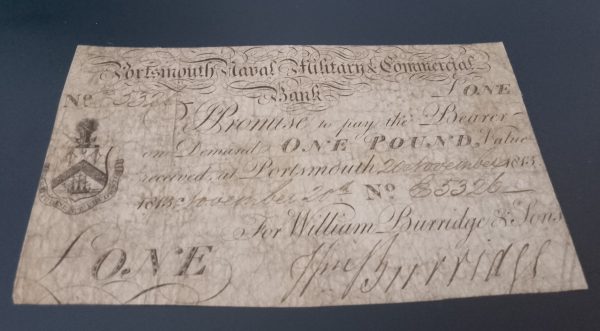 Portsmouth Naval Military & Commercial
Bank
No E5326 £ ONE
I Promise to pay the Bearer
on Demand ONE POUND, Value
received, at Portsmouth 20 November 1813
1813 November 20th No E5326
For William Burridge & Sons
£ ONE Wm Burridge